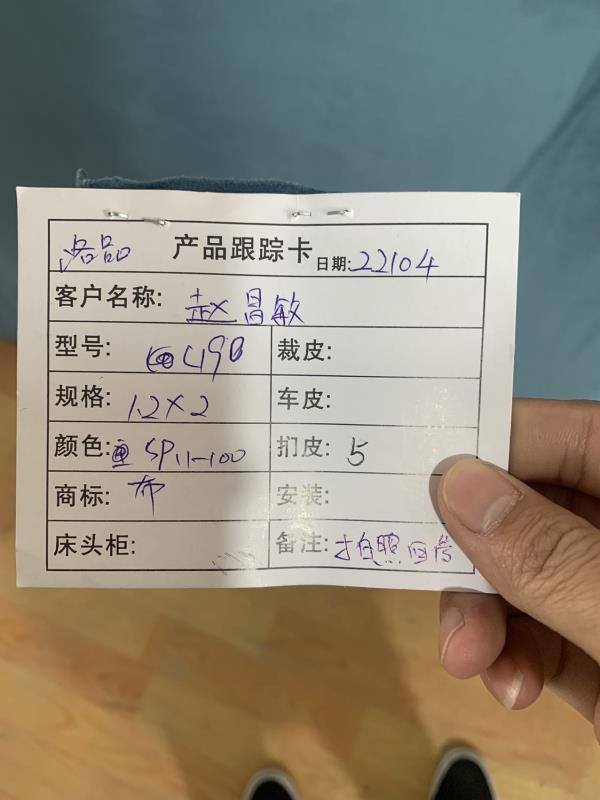 产品跟踪卡 日期:22104
客户名称: 赵昌敏
型号: C190 裁皮:
规格: 1.2×2 车皮:
颜色: SP11-100 扪皮: 5
商标: 布 安装:
床头柜: 备注: 拍照回传